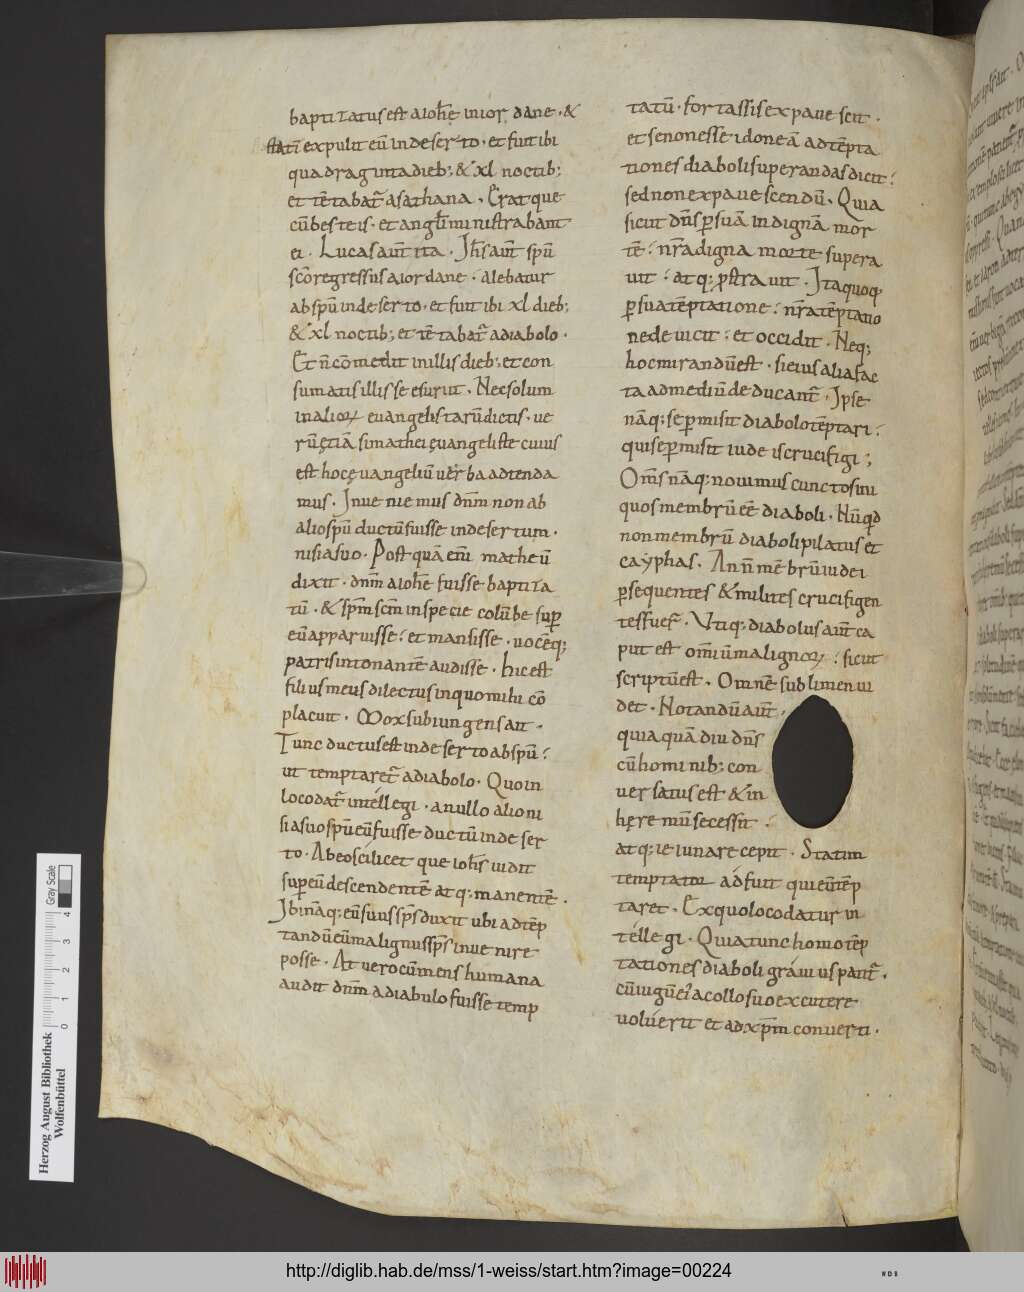 baptizatus est a ioh̅e in ior dane · &
statī expulit eū in deserto · et fuit ibi
quadraginta dieb; & xl noctib;
et tētabat᷑ a sathana · Erat que
cū bestiis · et angl̅i ministrabant
ei · Lucas aut̅ ita · Ih̅s aut̅ spū
sc̅o regressus a iordane · alebatur
ab spū in deserto · et fuit ibi xl dieb;
& xl noctib; et tētabat᷑ a diabolo ·
Et n̅ cōmedit in illis dieb; et con
sumatis illis se esuriit · Nec solum
in alioꝝ euangelistarū dictis · ue
rū ętiā si mathei ęuangeliste cuius
est hoc ęuangeliū uerba adtenda
mus · Inueniemus dn̅m non ab
alio spū ductū fuisse in desertum ·
nisi a suo · Postquā eni̅ matheū
dixit · dn̅m a ioh̅e fuisse baptiza
tū · & sp̅m sc̅m in specie colūbe sup̲
eū apparuisse · et mansisse · uocēq;
patris intonantē audisse · hic est
filius meus dilectus in quo mihi cō
placuit · Mox subiungens ait ·
Tunc ductus est in deserto ab spū ·
ut temptaret᷑ a diabolo · Quo in
loco dat᷑ intellegi · a nullo alio ni
si a suo spū eū fuisse ductū in deser
to · Ab eo scilicet que ioh̅s uidit
sup̲ eū descendentē atq; manentē ·
Ibi nāq; eū suus sp̅s duxit ubi ad tēp
tandū eū malignus sp̅s inuenire
posse · At uero cū mens humana
audit dn̅m a diabulo fuisse temp
tatū · fortassis expauescit ·
et se non esse idoneā ad tēpta
tiones diaboli superandas dicit ·
sed non expauescendū · Quia
sicut dn̅s p̲ suā indignā mor
tē · nr̅a digna morte supera
uit · atq; p̲straruit · Ita quoq̲
p̲ sua tēptatione · nr̅a tēptatio
nede uicit · et occidit · Neq;
hoc mirandū est · si eius alia fac
ta ad mediū deducant᷑ · Ipse
nāq; se p̲misit diabolo tēptari ·
qui se p̲misit iudeis crucifigi ;
Om̅s nāq; nouimus cunctos ini
quos membrū ee̅ diaboli · Nūq̲d
non membrū diaboli pilatus et
cayphas · An n̅ mēbrū iudei
p̲sequentes & milites crucifigen
tes fuer̅ · Vtiq; diabolus aut̅ ca
put est om̅iū malignoꝝ · sicut
scriptū est · Omnē sublimen ui
det · Notandū aut̅ ·
quia quādiu dn̅s
cū hominib; con
uersatus est & in
hęremū secessit ·
atq; ieiunare cepit · Statim
temptator adfuit qui eū tēp
taret · Ex quo loco datur in
tellegi · Quia tunc homo tēp
tationes diaboli grauius pant᷑ ·
cū iugū ei a collo suo excutere
uoluerit et ad xp̅m conuerti ·
Herzog August Bibliothek
Wolfenbüttel
0 1 2 3 4
Gray Scale
http://diglib.hab.de/mss/1-weiss/start.htm?image=00224